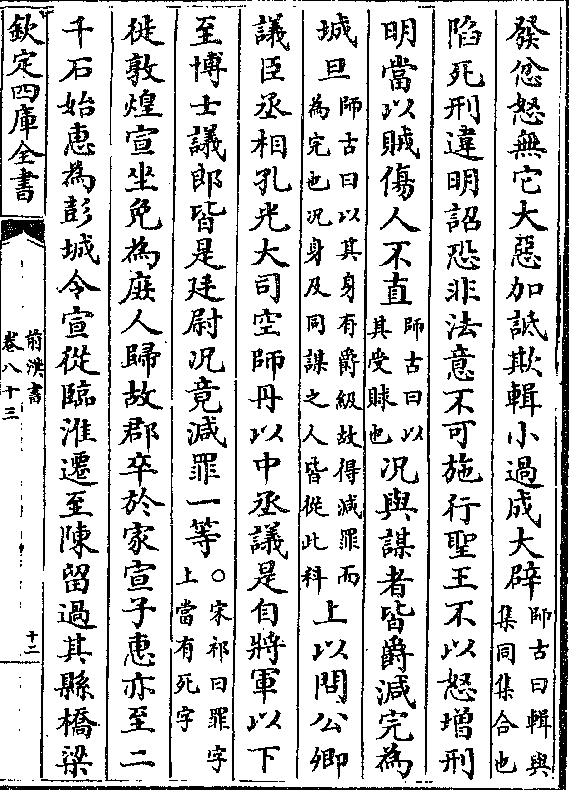 發忿怒無它大惡加詆欺輯小過成大辟師古曰輯與集同集合也
陷死刑違明詔恐非法意不可施行聖王不以怒增刑
明當以賊傷人不直師古曰以其受賕也况與謀者皆爵減完為
城旦師古曰以其身有爵級故得減罪而為完也况身及同謀之人皆從此科上以問公卿
議臣丞相孔光大司空師丹以中丞議是自將軍以下
至博士議郎皆是廷尉况竟減罪一等○宋祁曰罪字上當有死字
徙敦煌宣坐免為庶人歸故郡卒於家宣子惠亦至二
千石始惠為彭城令宣從臨淮遷至陳留過其縣橋梁
欽定四庫全書
前漢書
卷八十三
十二